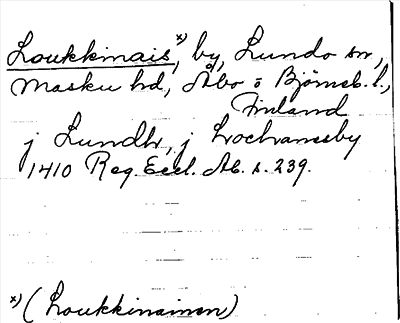 Loukkinais ×), by, Lundo sn,
Masku hd, Åbo o Björneb. l.,
Finland
j Lundh, j Lochanesby
1410 Reg. Eccl. Ab. s. 239.
×) (Loukkinainen)